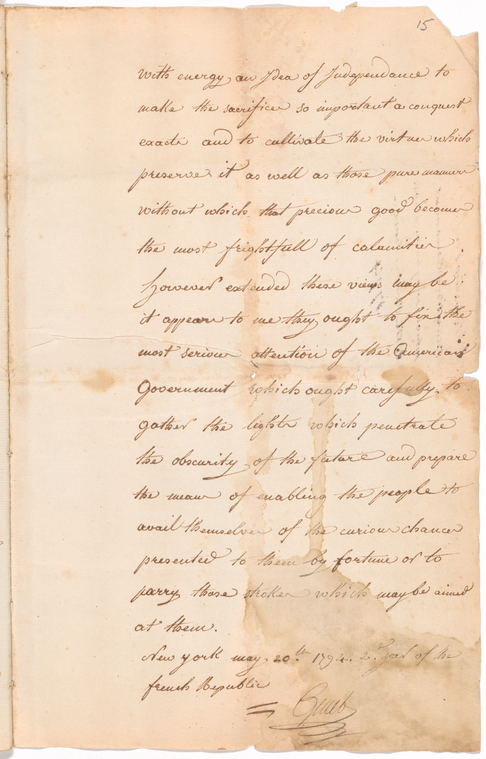 15
with energy, an Idea of Independance to
make the sacrifices so important a conquest
exacts and to cultivate the virtues which
preserve it as well as those pure manners
without which that precious good becomes
the most frightfull of calamities.
however extended these views may be
it appears to me they ought to fix the
most serious attention of the American
Government which ought carefully to
gather the lights which penetrate
the obscurity of the future and prepare
the means of enabling the people to
avail themselves of the curious chances
presented to them by fortune or to
parry those strokes which may be aimed
at them.
New york may 20th 1794. 2d year of the
french Republic